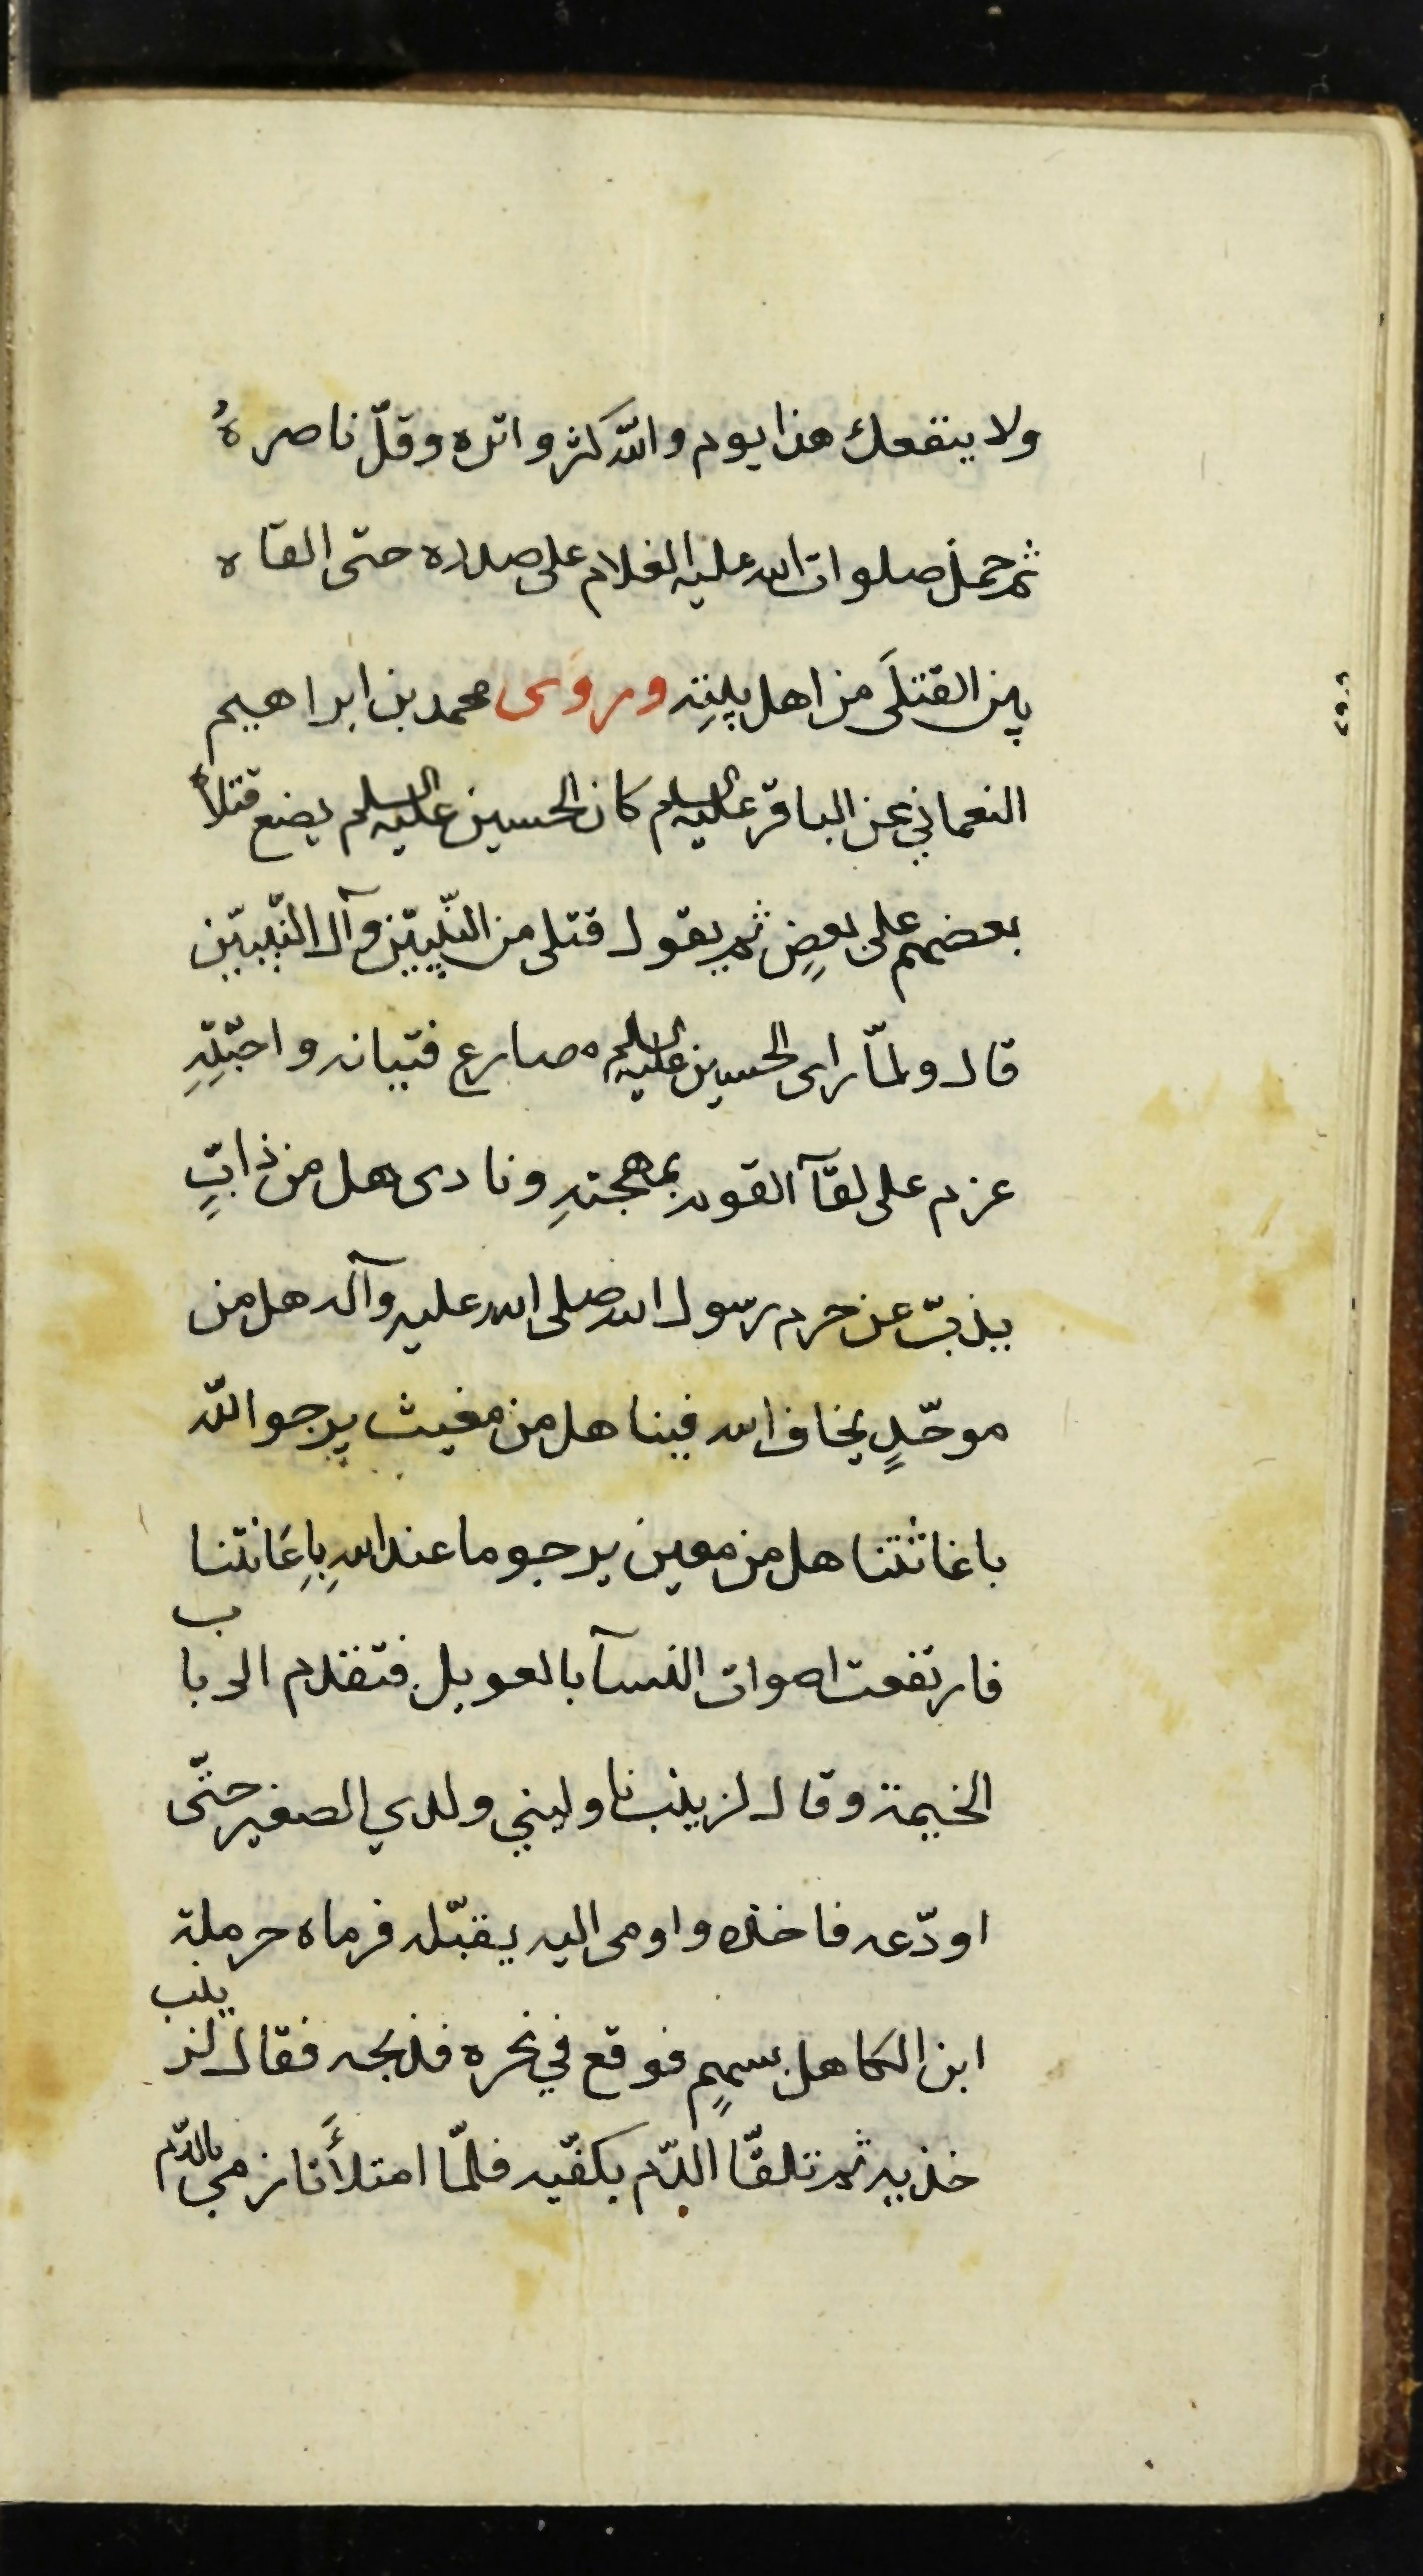 ولا ينفعك هذا يوم والله كثر واتره وقلّ ناصرهُ
ثم حمل صلوات الله عليه الغلام على صدره حتى القاه
بين القتلَى من اهل بيتِه وروَى محمد بن ابراهيم
النعماني عن الباقر عليه السلم كان الحسين عليه السلم يضع قتلاهُ
بعضهم على بعضٍ ثم يقول قتلى من النّبيّين وآل النّبيّين
قال ولمّا راى الحسين عليه السلم مصارع فتيانه واحبّتِهِ
عزم على لقآ القوم بمهجتهِ ونادى هل من ذابٍّ
يذبّ عن حرم رسول الله صلى الله عليه وآله هل من
موحّدٍ يخاف الله فينا هل من مغيث يرجو اللّه
باغاثتنا هل من معين يرجو ما عند اللهِ بِاِعَانتنا
فارتفعت اصوات النسآ بالعويل فتقدم الى باب
الخيمة وقال لزينب ناوليني ولدي الصغير حتّى
اودّعه فاخذه واومى اليه يقبّله فرماه حرملة
ابن الكاهل بسهمٍ فوقع في نحره فذبحه فقال لزينب
خذيه ثم تلقّا الدّم بكفّيه فلمّا امتلأَتا رمي بالدّم